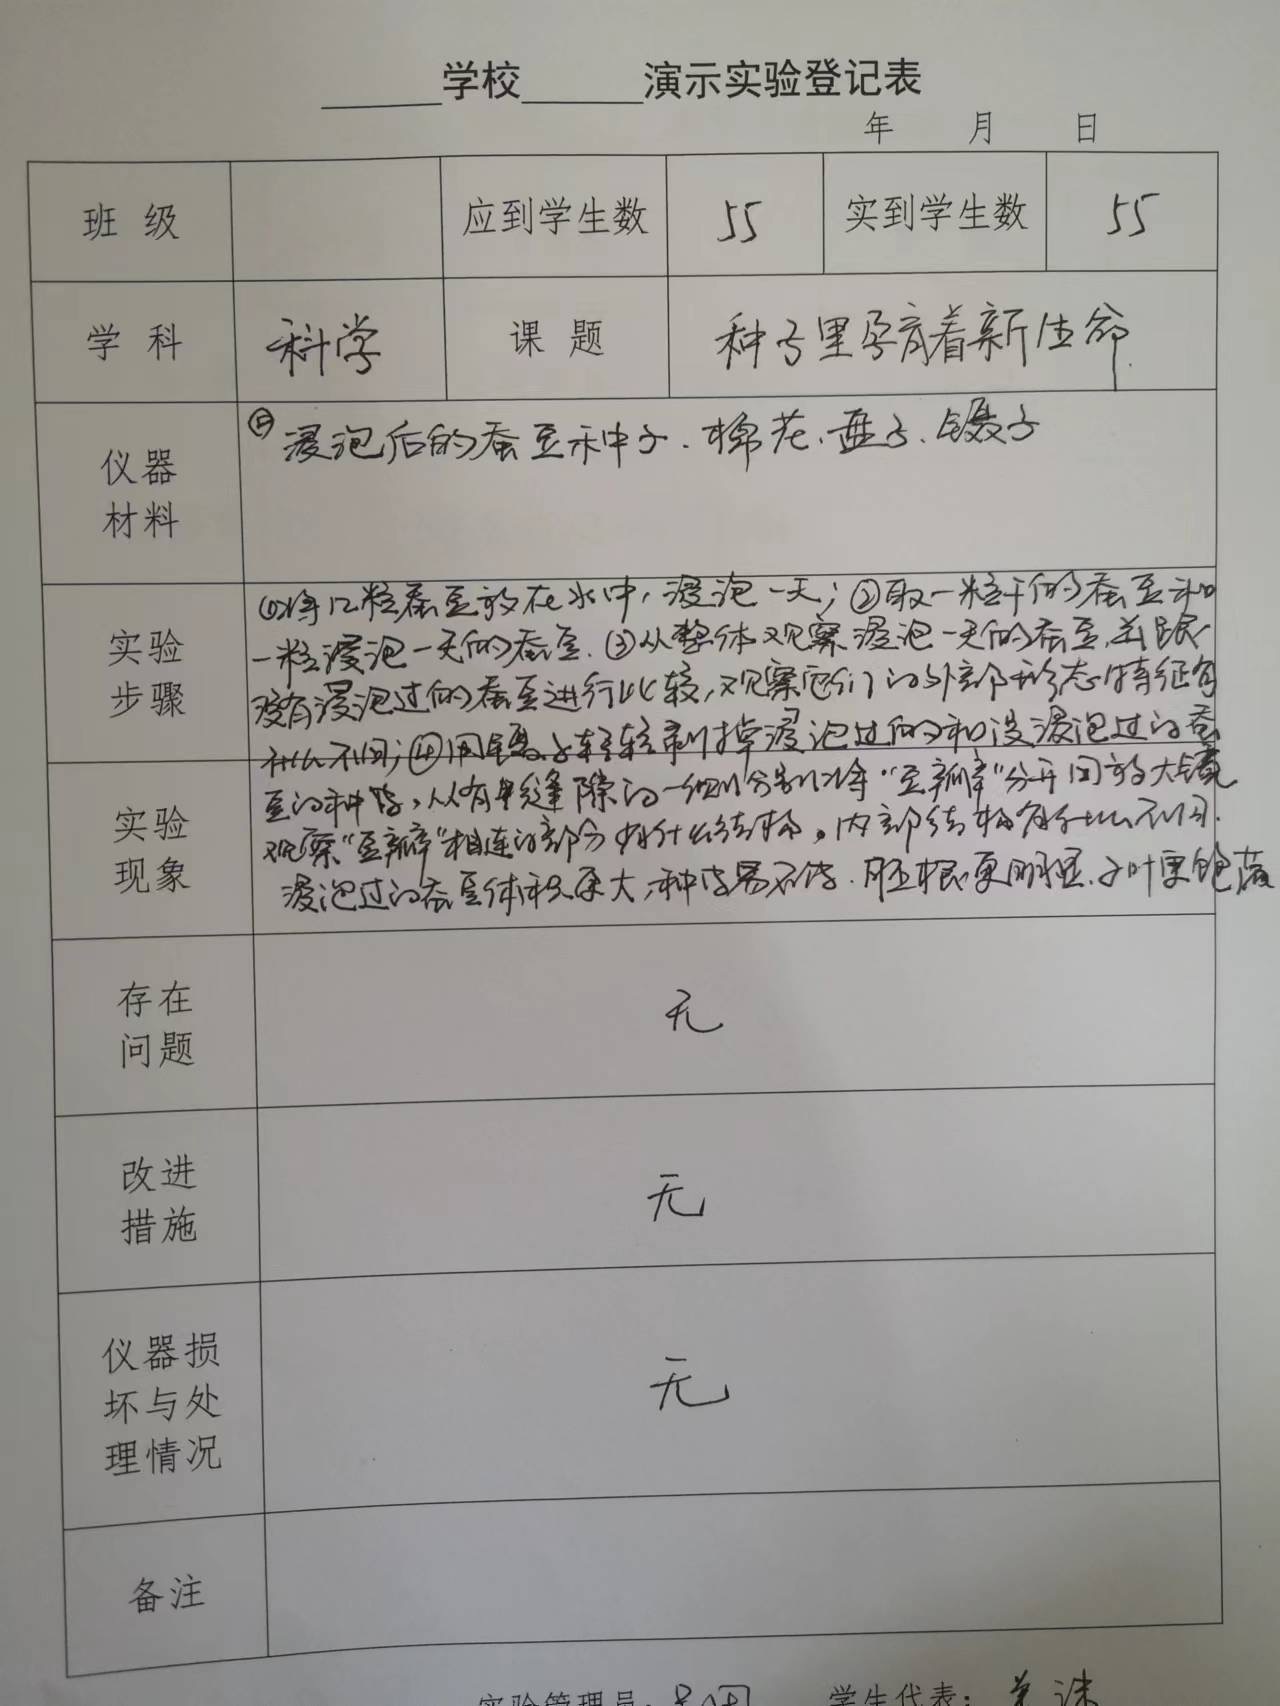 ______学校______演示实验登记表
年 月 日
班 级 应到学生数 55 实到学生数 55
学 科 科学 课 题 种子里孕育着新生命
仪器
材料
浸泡后的蚕豆种子、棉花、盘子、镊子
实验
步骤
①将几粒蚕豆放在水中，浸泡一天；②取一粒干的蚕豆和
一粒浸泡一天的蚕豆.③从整体观察浸泡一天的蚕豆,并跟
没有浸泡过的蚕豆进行比较,观察它们的外部形态特征有
什么不同；④用镊子轻轻剥掉浸泡过的和没浸泡过的蚕
实验
现象
豆的种皮，从有缝隙的一侧分别将“豆瓣”分开用放大镜
观察“豆瓣”相连的部分有什么结构。内部结构有什么不同.
浸泡过的蚕豆体积更大,种皮易去皮.胚根更明显.子叶更饱满
存在
问题
无
改进
措施
无
仪器损
坏与处
理情况
无
备注
实验管理员： 学生代表：